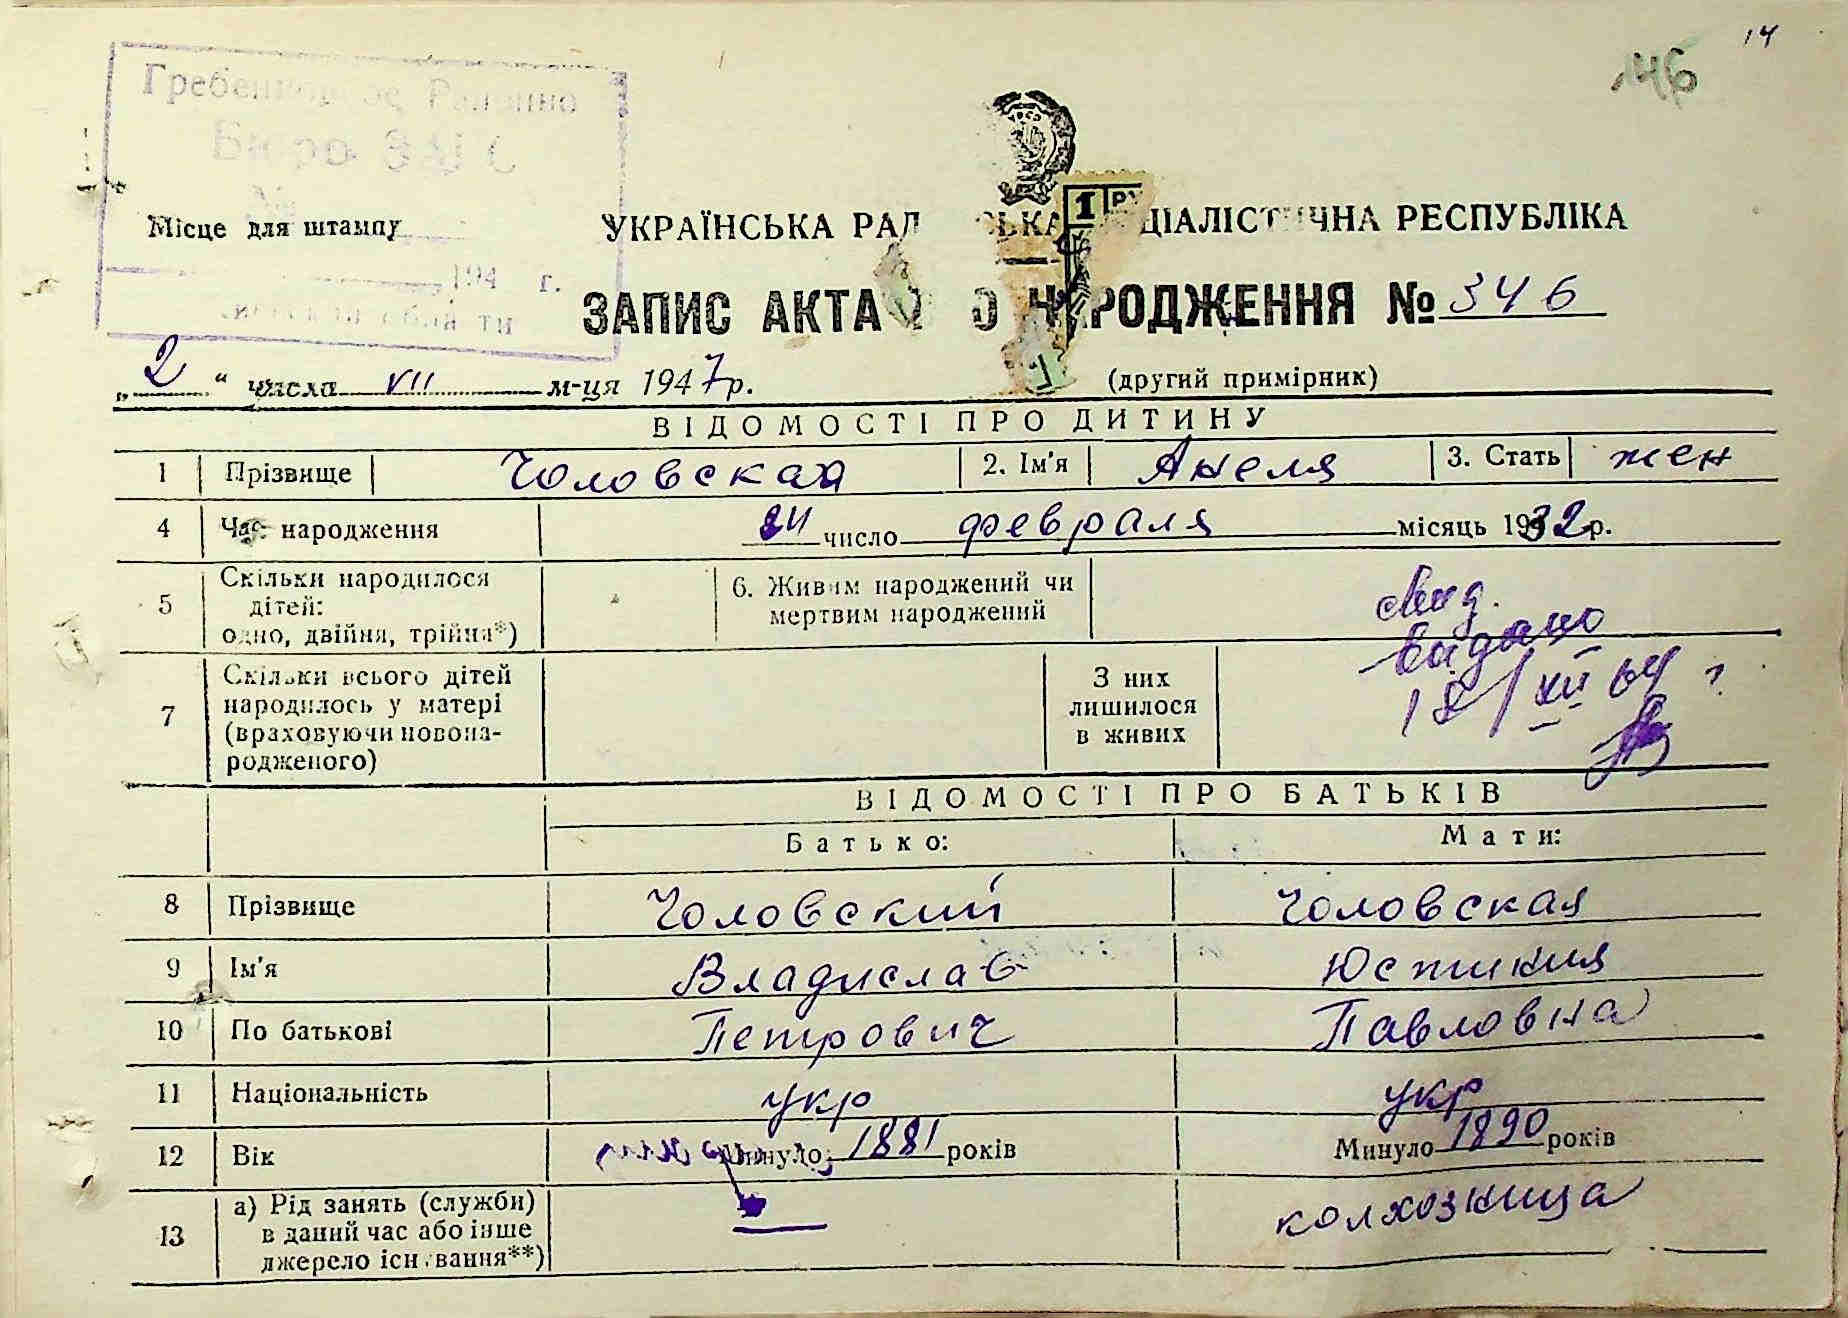 14
146
Бюро ЗАГС
№
Місце для штампу
194 г.
УКРАЇНСЬКА РАД ЬКА ЦІАЛІСТИЧНА РЕСПУБЛІКА
1 РУ
ЗАПИС АКТА О НАРОДЖЕННЯ № 346
„ 2 “ числа VII м-ця 1947 р.
(другий примірник)
ВІДОМОСТІ ПРО ДИТИНУ
1 Прізвище Чоловская 2. Ім'я Анеля 3. Стать жен
4 Час народження 24 число февраля місяць 1932 р.
5 Скільки народилося дітей: одно, двійня, трійня*)
6. Живим народжений чи мертвим народжений
Свид.
видано
18/XII 64 г.
7 Скільки всього дітей народилось у матері (враховуючи новонародженого)
З них лишилося в живих
ВІДОМОСТІ ПРО БАТЬКІВ
Батько: Мати:
8 Прізвище Чоловский Чоловская
9 Ім'я Владислав Юстиния
10 По батькові Петрович Павловна
11 Національність укр укр
12 Вік Минуло 1881 років Минуло 1890 років
13 а) Рід занять (служби) в даний час або інше джерело існування**) — колхозница